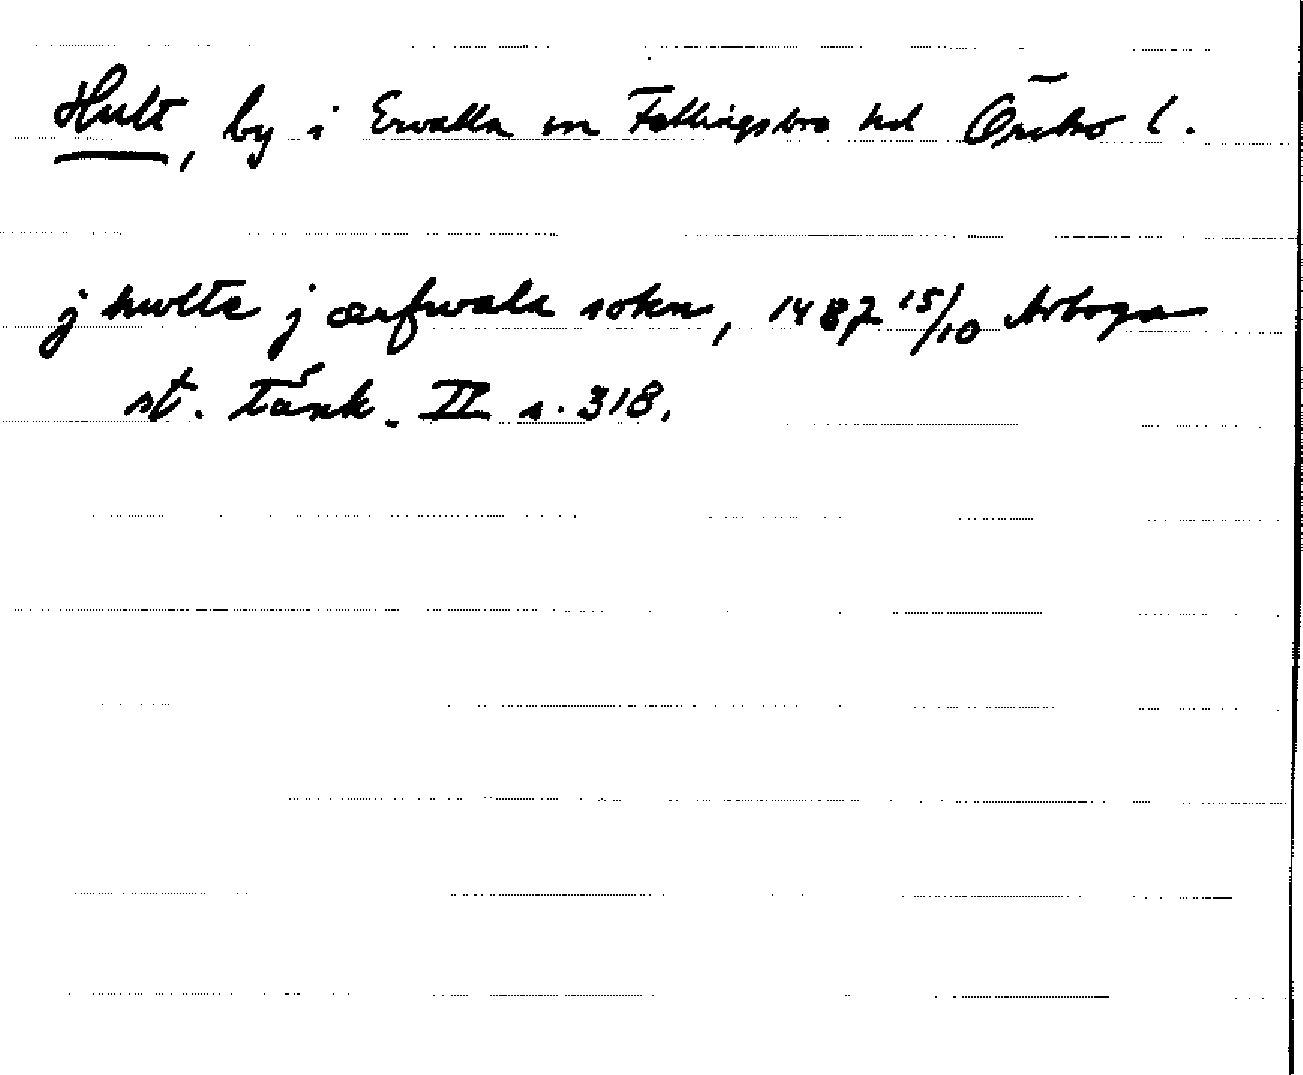 Hult, by i Ervalla sn Fellingsbro hd Örebro l.
j hwlte j ærfwala sokn, 1487 15/10 Arboga
st. tänk. II s. 318.